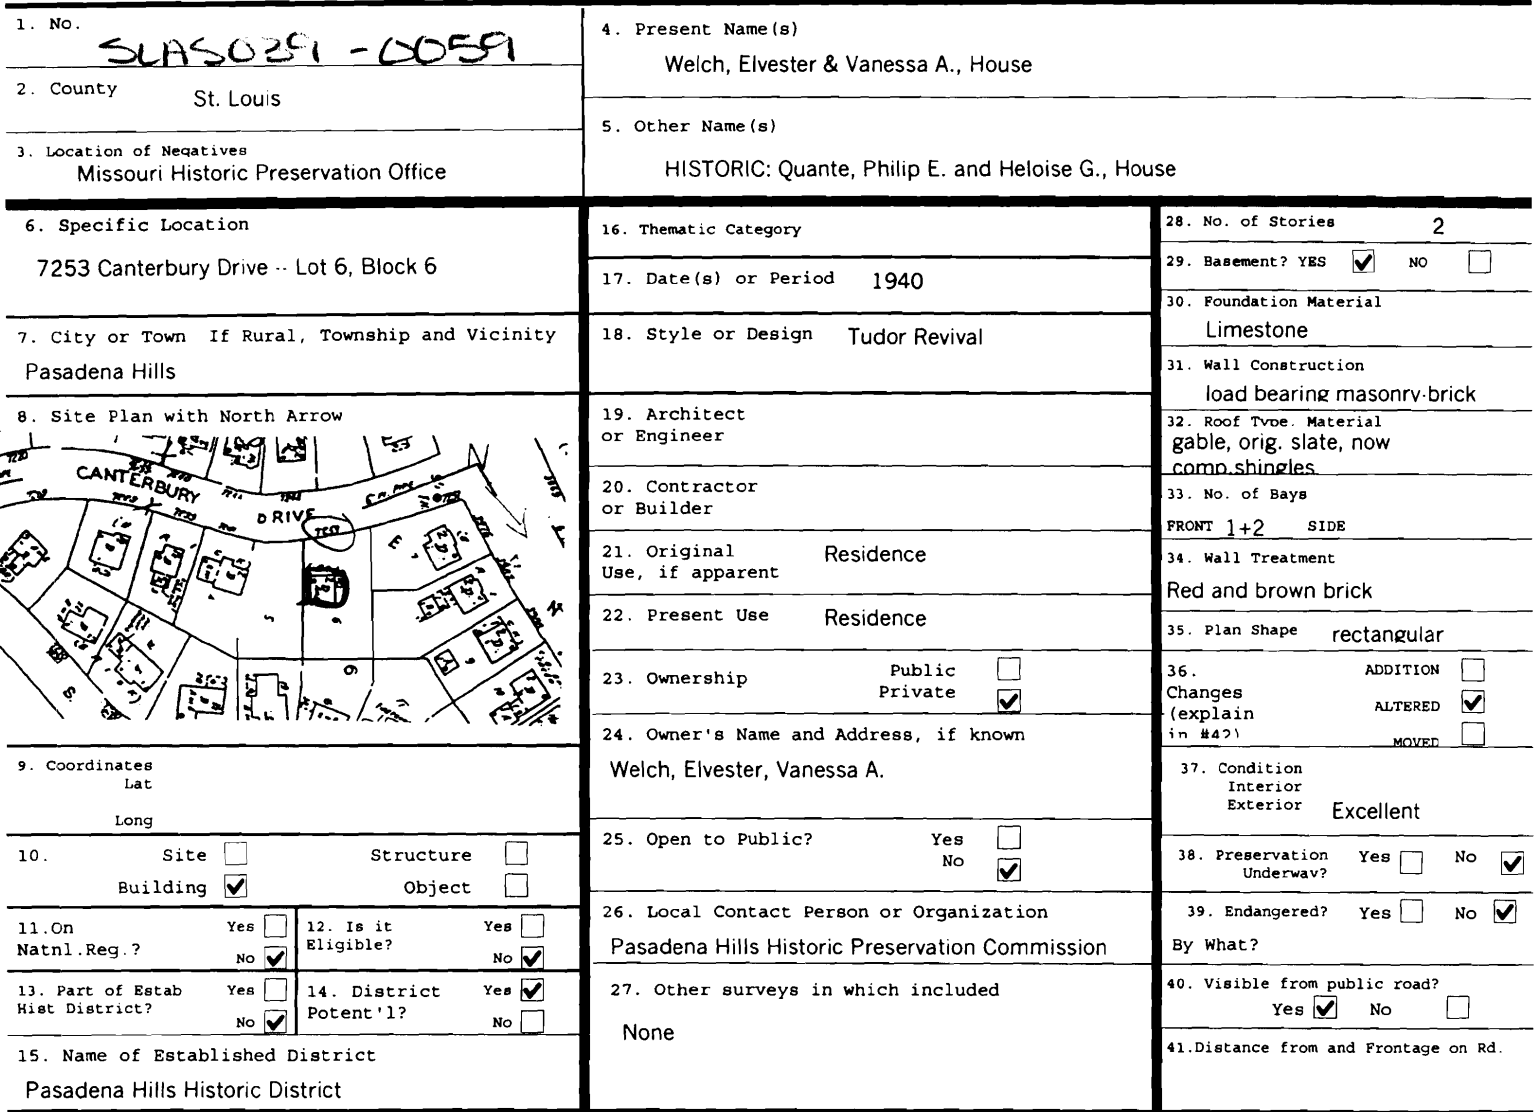 1. No.
SLAS039-0059
2. County
St. Louis
3. Location of Negatives
Missouri Historic Preservation Office
4. Present Name(s)
Welch, Elvester & Vanessa A., House
5. Other Name(s)
HISTORIC: Quante, Philip E. and Heloise G., House
6. Specific Location
7253 Canterbury Drive -- Lot 6, Block 6
7. City or Town If Rural, Township and Vicinity
Pasadena Hills
8. Site Plan with North Arrow
CANTERBURY
DRIVE
7253
9. Coordinates
Lat
Long
10. Site Structure
Building Object
11.On Yes
Natnl.Reg.? No
12. Is it Yes
Eligible? No
13. Part of Estab Yes
Hist District? No
14. District Yes
Potent'l? No
15. Name of Established District
Pasadena Hills Historic District
16. Thematic Category
17. Date(s) or Period 1940
18. Style or Design Tudor Revival
19. Architect
or Engineer
20. Contractor
or Builder
21. Original Residence
Use, if apparent
22. Present Use Residence
23. Ownership Public
Private
24. Owner's Name and Address, if known
Welch, Elvester, Vanessa A.
25. Open to Public? Yes
No
26. Local Contact Person or Organization
Pasadena Hills Historic Preservation Commission
27. Other surveys in which included
None
28. No. of Stories 2
29. Basement? YES NO
30. Foundation Material
Limestone
31. Wall Construction
load bearing masonry-brick
32. Roof Type. Material
gable, orig. slate, now
comp.shingles
33. No. of Bays
FRONT 1+2 SIDE
34. Wall Treatment
Red and brown brick
35. Plan Shape rectangular
36. ADDITION
Changes
(explain ALTERED
in #42) MOVED
37. Condition
Interior
Exterior Excellent
38. Preservation Yes No
Underway?
39. Endangered? Yes No
By What?
40. Visible from public road?
Yes No
41.Distance from and Frontage on Rd.